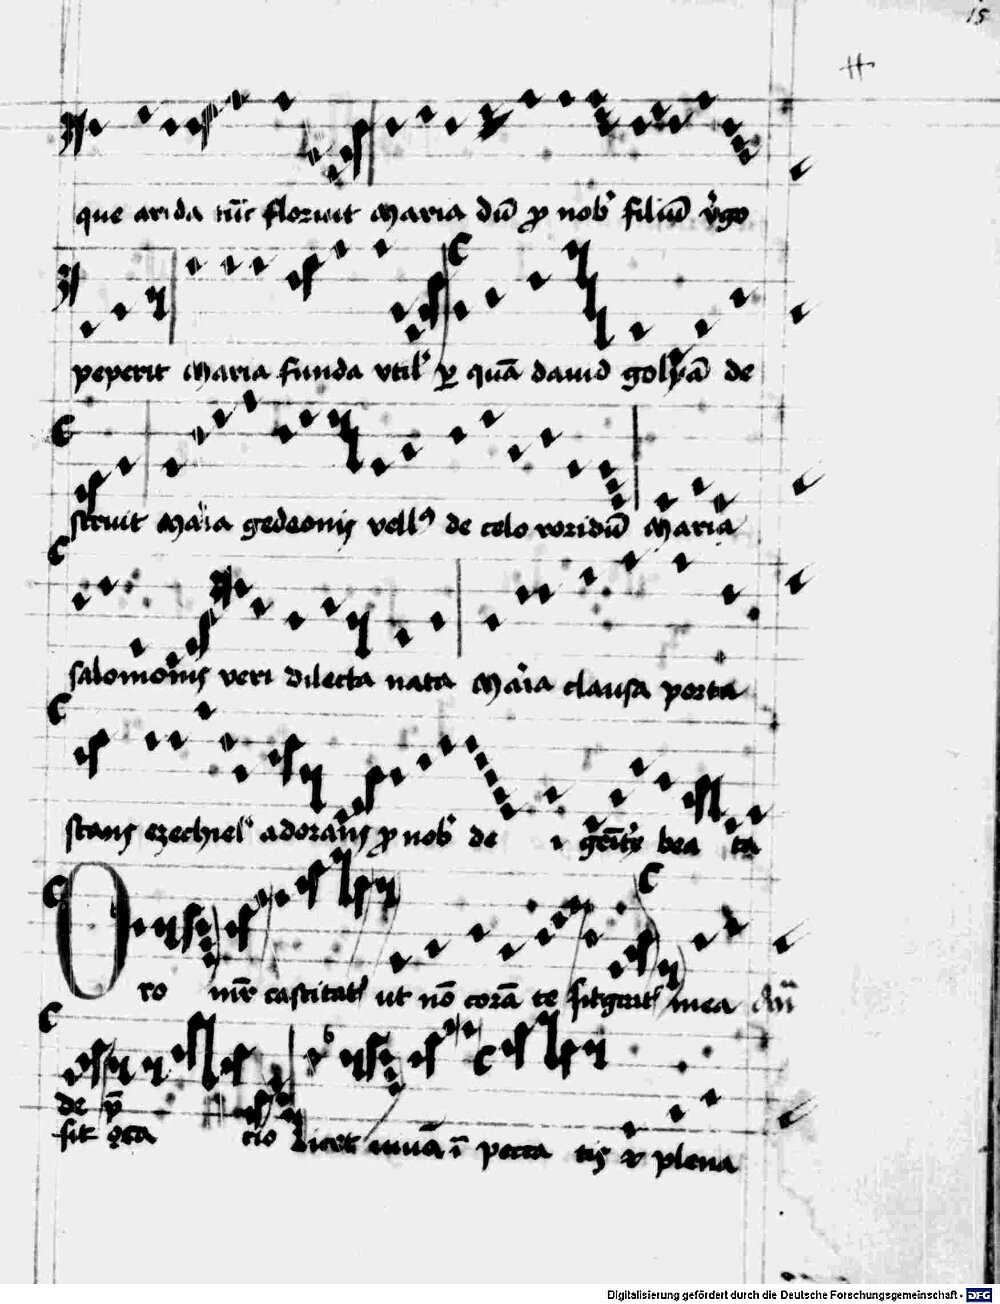 15
que arida tūc floruit Maria dū p nob' filiū v'go
peperit Maria funda vtil' p quā dauid golyā de
struit Ma'ia gedeonis vell9 de celo roridū Maria
salomonis veri dilecta nata Ma'ia clausa porta
stans ezechiel' adorans p nob' de i gēit'x bea ta
Oro castitat ut nō corā te mea
de p
sit gra cio Licet ī pecca tis & plena
Digitalisierung gefördert durch die Deutsche Forschungsgemeinschaft - DFG